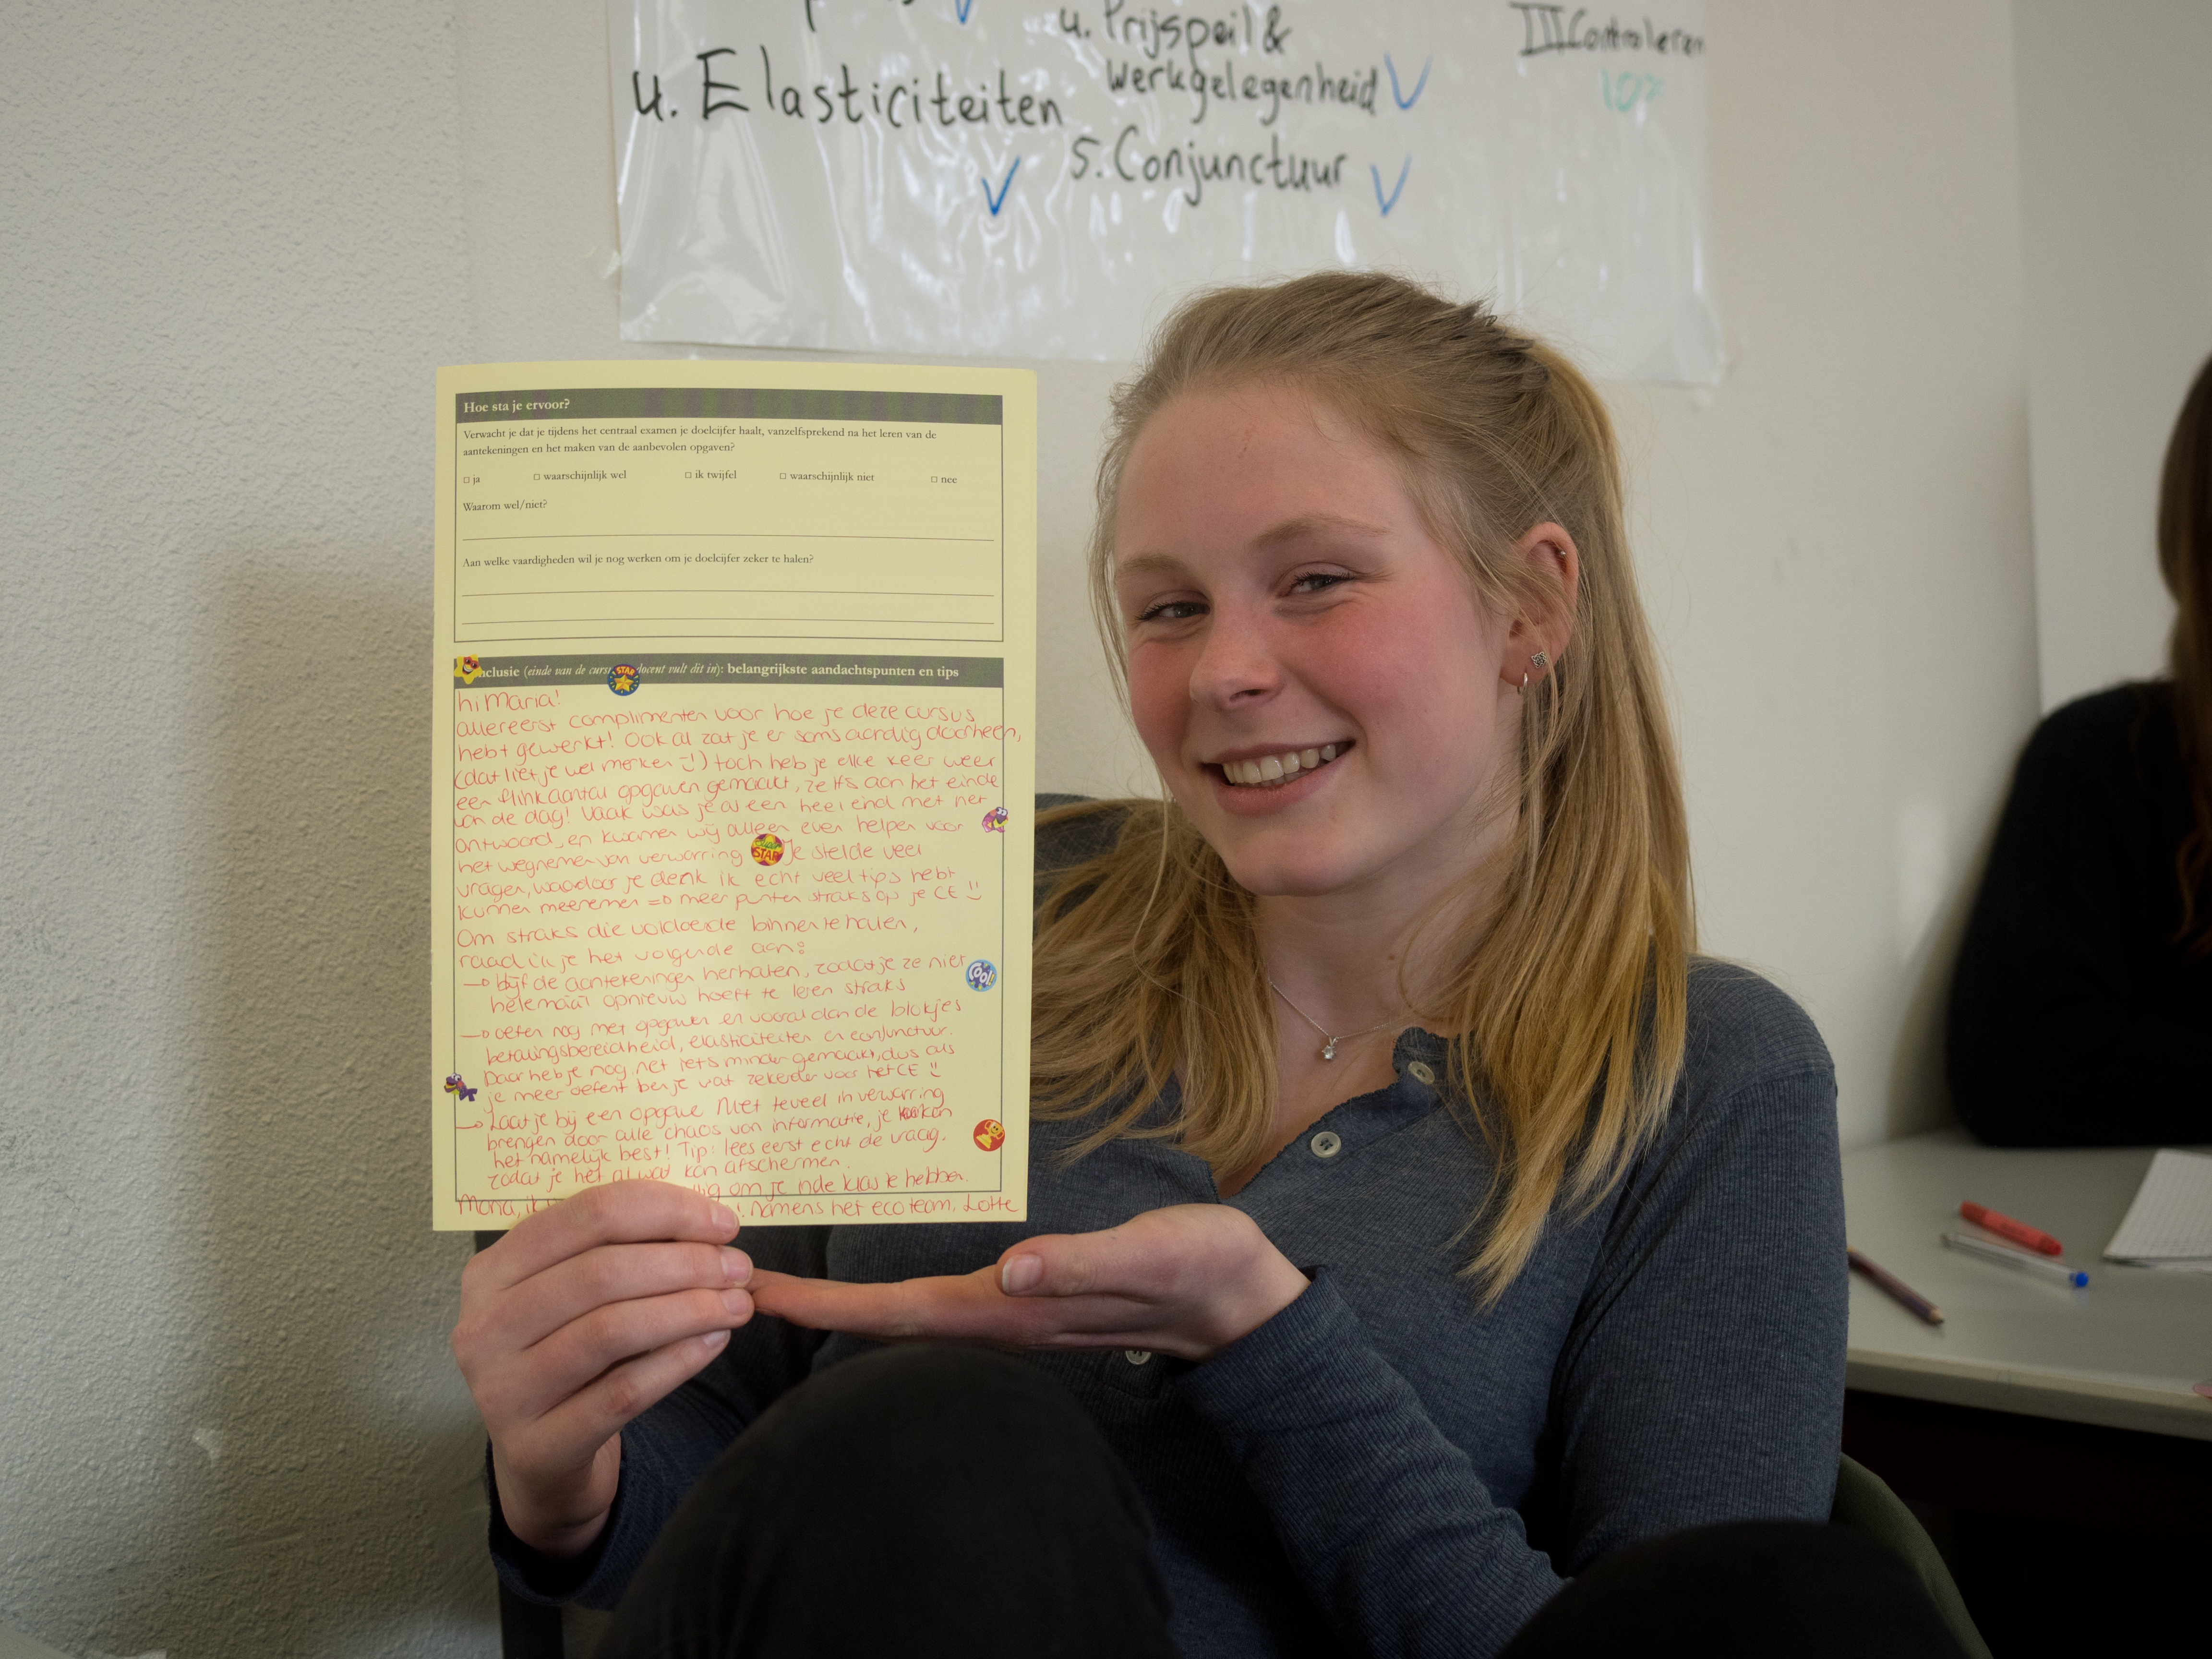 u. Elasticiteiten
u. Prijspeil &
werkgelegenheid
5. Conjunctuur
III Controleren
Hoe sta je ervoor?
Verwacht je dat je tijdens het centraal examen je doelcijfer haalt, vanzelfsprekend na het leren van de
aantekeningen en het maken van de aanbevolen opgaven?
□ ja □ waarschijnlijk wel □ ik twijfel □ waarschijnlijk niet □ nee
Waarom wel/niet?
Aan welke vaardigheden wil je nog werken om je doelcijfer zeker te halen?
nclusie (einde van de curs docent vult dit in): belangrijkste aandachtspunten en tips
STAR
hi Maria!
allereerst complimenten voor hoe je deze cursus
hebt gewerkt! Ook al zat je er soms aardig doorheen,
(dat liet je wel merken :)) toch heb je elke keer weer
een flink aantal opgaven gemaakt, zelfs aan het einde
van de dag! Vaak was je al een heel eind met het
antwoord, en kwamen wij alleen even helpen voor
het wegnemen van verwarring STAR Je stelde veel
vragen, waardoor je denk ik echt veel tips hebt
kunnen meenemen => meer punten straks op je CE :)
Om straks die voldoende binnen te halen,
raad ik je het volgende aan:
→ blijf de aantekeningen herhalen, zodat je ze niet
helemaal opnieuw hoeft te leren straks
COOL!
→ oefen nog met opgaven en vooral aan de blokjes
betalingsbereidheid, elasticiteiten en conjunctuur.
Daar heb je nog net iets minder gemaakt, dus als
je meer oefent ben je wat zekerder voor het CE :)
→ Laat je bij een opgave niet teveel in verwarring
brengen door alle chaos van informatie, je kan
het namelijk best! Tip: lees eerst echt de vraag,
zodat je het al wat kan afschermen.
lig om je in de klas te hebben.
Maria, ik namens het eco team, Lotte